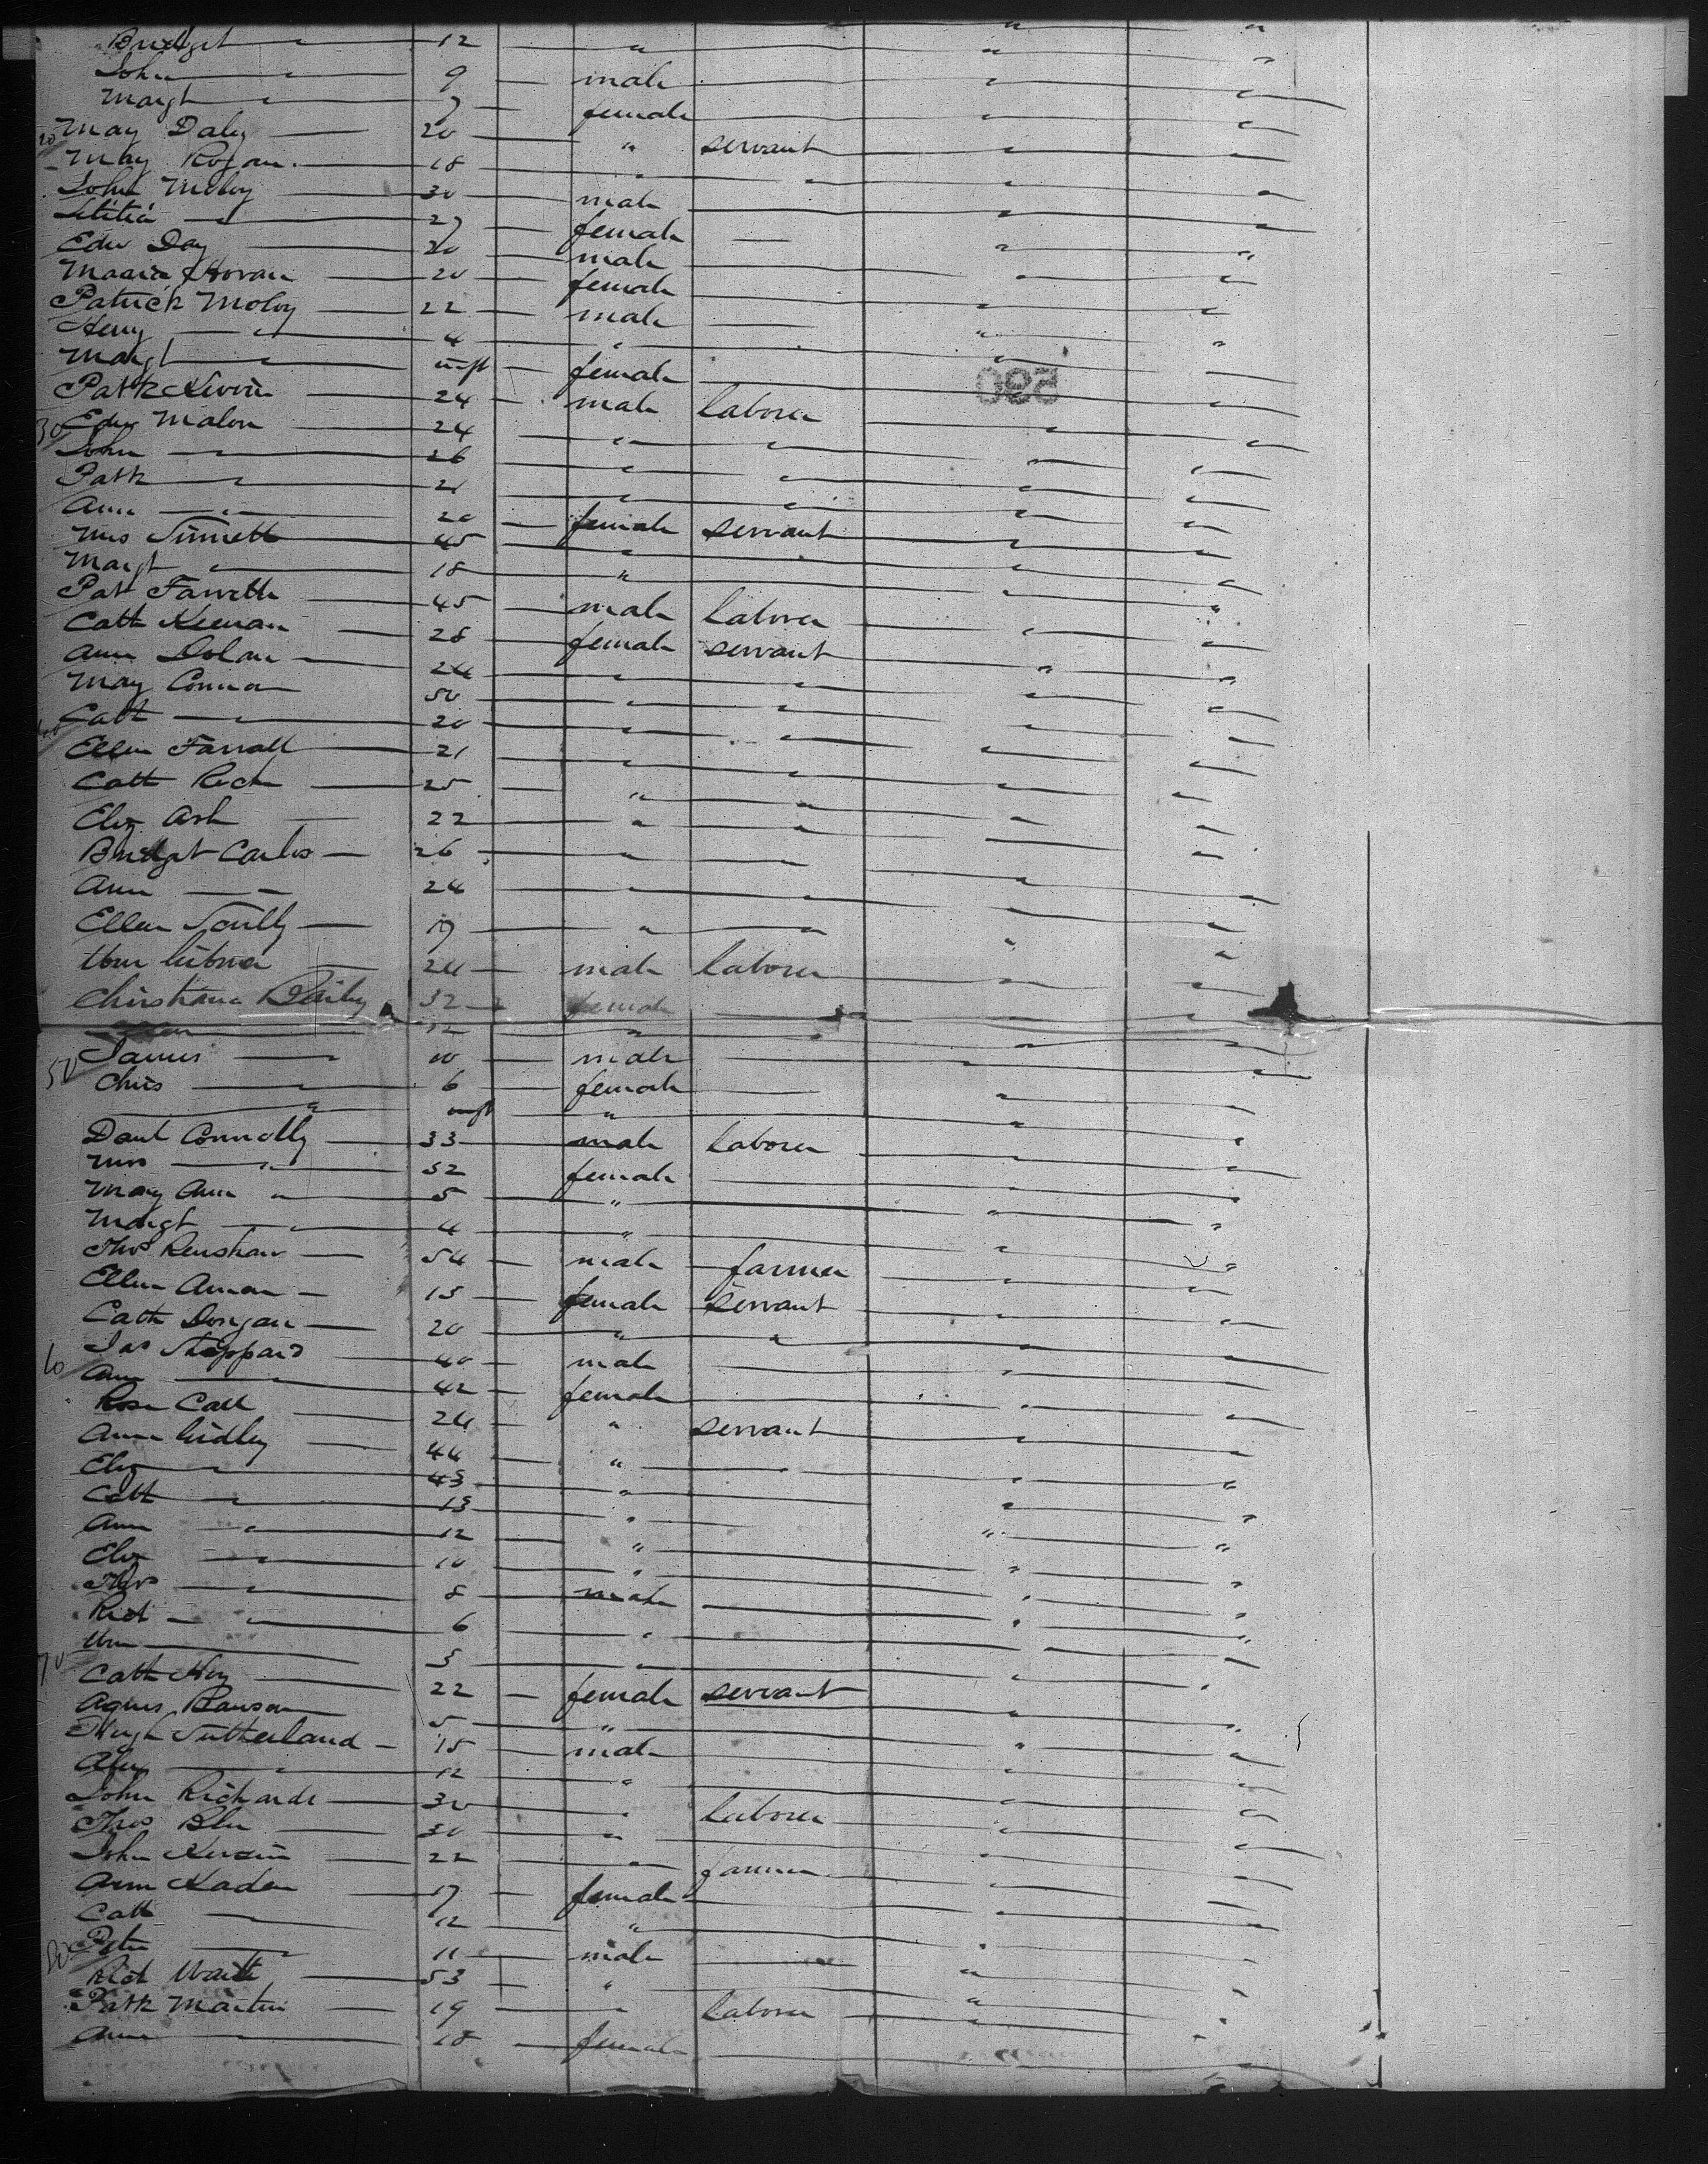 Bridget " 12 " " "
John " 9 male " "
Margt " 7 female " "
20 May Daly 20 " servant " "
May Rogan 18 " " " "
John Moloy 30 male " "
Letitia " 27 female " "
Edw Day 20 male " "
Maaria Horan 20 female " "
Patrick Moloy 22 male " "
Heny " 4 " " "
Margt " inft female " "
Patk Kervin 24 male laborer " "
30 Edw Malon 24 " " " "
John " 26 " " " "
Patk " 21 " " " "
Ann " 20 female servant " "
Mrs Sinnett 45 " " "
Margt " 18 " " "
Pat Farrell 45 male laborer " "
Cath Keenan 28 female servant " "
Ann Dolan 24 " " " "
May Connor 50 " " " "
40 Cath " 20 " " " "
Ellen Farrall 21 " " " "
Cath 25 " " " "
Eliz Ash 22 " " " "
Bridget Carlos 26 " " " "
Ann " 24 " " " "
Ellen Scully 17 " " " "
Wm 24 male laborer " "
Christiana Bailey 32 female " "
12 " " "
50 James " 10 male " "
Chris " 6 female " "
" inft " " "
Danl Connolly 33 male laborer " "
Mrs " 32 female " "
May Ann " 5 " " "
Margt " 4 " " "
Thos Renshaw 54 male farmer " "
Ellen 15 female servant " "
Cath Dongan 20 " " " "
60 Jas Sheppard 40 male " "
Ann 42 female " "
Rose Call 24 " servant " "
Ann Gidley 44 " " " "
Eliz " 43 " " "
Cath " 13 " " "
Ann " 12 " " "
Eliz " 10 " " "
Thos " 8 male " "
Rich " 6 " " "
70 Wm 3 " " "
Cath Hoy 22 female servant " "
Agnes Rawson 5 " " "
Hugh Sutherland 15 male " "
Alex " 12 " " "
John Richards 30 " laborer " "
Thos 30 " " "
John Kervin 22 " farmer " "
Ann Kaden 17 female " "
Cath 12 " " "
80 Peter " 11 male " "
Rich Waite 53 " " "
Patk Martin 19 " laborer " "
Ann 18 female